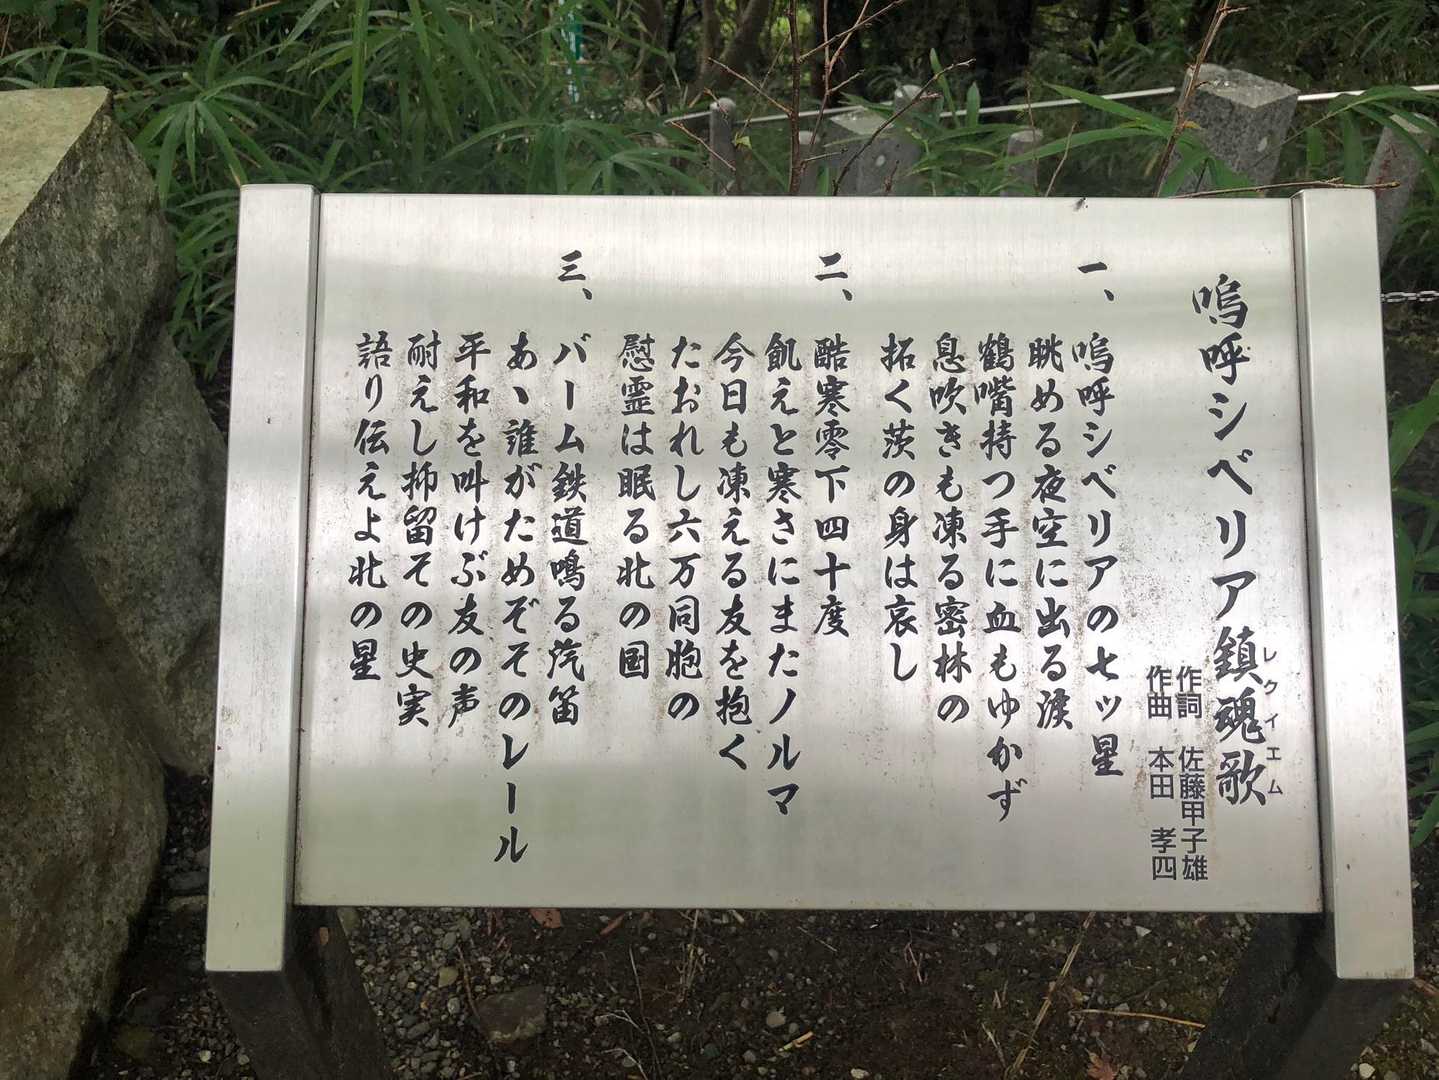 嗚呼シベリア鎮魂歌
レクイエム
作詞 佐藤甲子雄
作曲 本田 孝四
一、
嗚呼シベリアの七ッ星
眺める夜空に出る涙
鶴嘴持つ手に血もゆかず
息吹きも凍る密林の
拓く茨の身は哀し
二、
酷寒零下四十度
飢えと寒さにまたノルマ
今日も凍える友を抱く
たおれし六万同胞の
慰霊は眠る北の国
三、
バーム鉄道鳴る汽笛
あゝ誰がためぞそのレール
平和を叫けぶ友の声
耐えし抑留その史実
語り伝えよ北の星